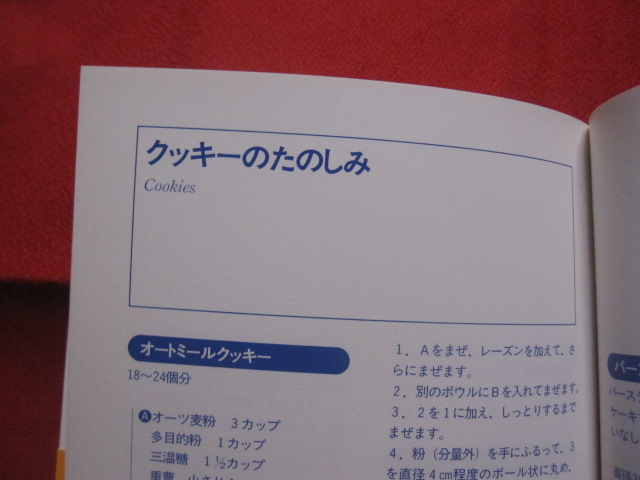 クッキーのたのしみ
Cookies
オートミールクッキー
18〜24個分
Aオーツ麦粉 3カップ
多目的粉 1カップ
三温糖 1½カップ
重曹 小さじ
1. Aをまぜ、レーズンを加えて、さ
らにまぜます。
2. 別のボウルにBを入れてまぜます。
3. 2を1に加え、しっとりするまで
まぜます。
4. 粉（分量外）を手にふるって、3
を直径4cm程度のボール状に丸め、
バース
バースデ
ケーキ
いなし